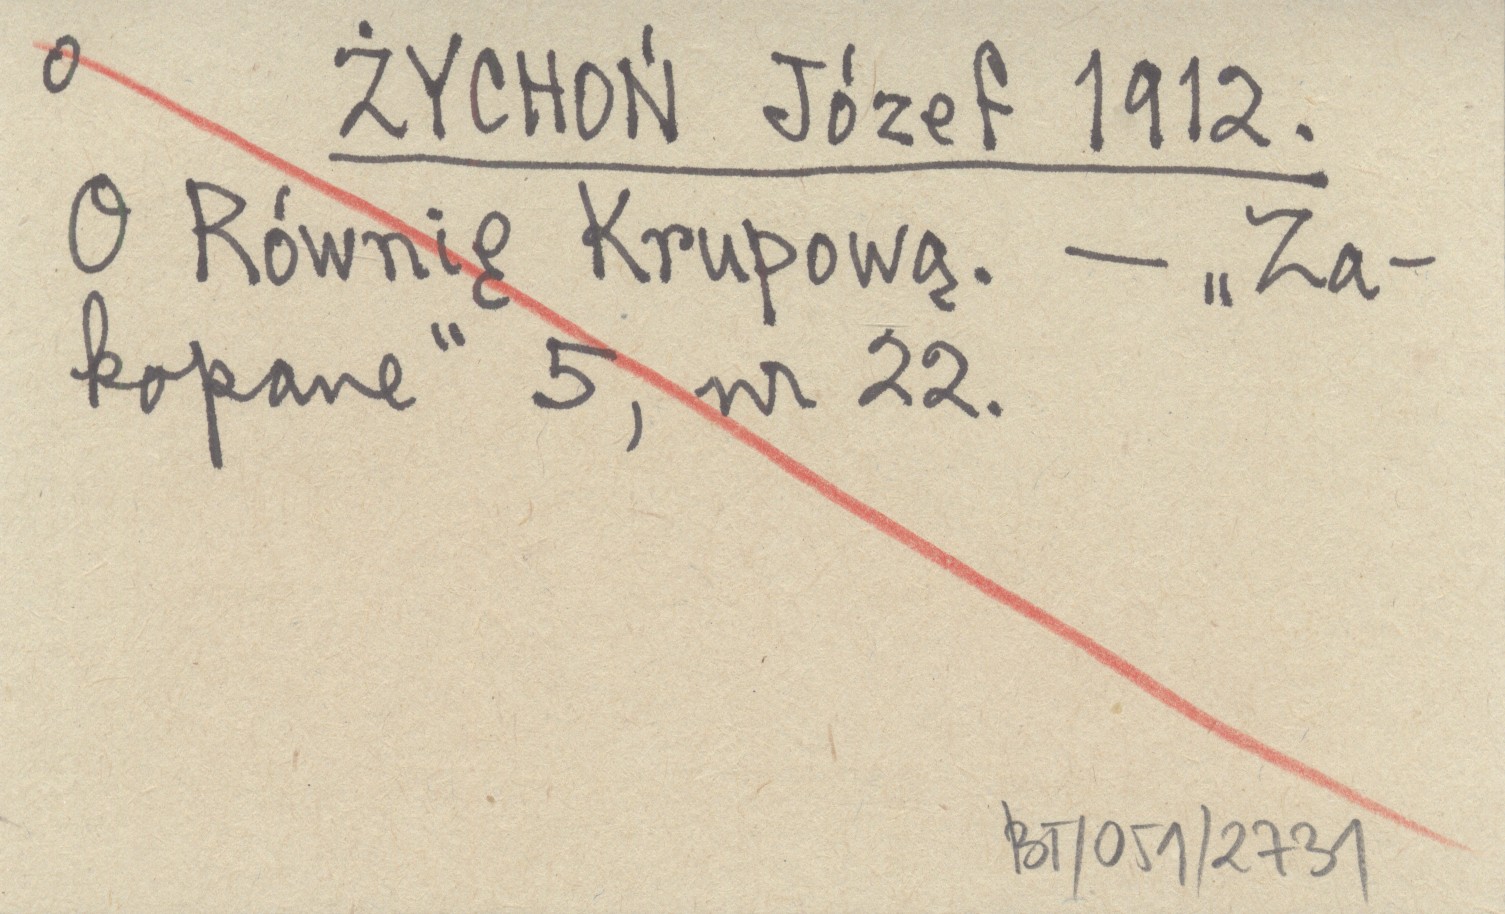 o ŻYCHOŃ Józef 1912.
O Równię Krupową. — „Za-
kopane" 5, nr 22.
BT/051/2731